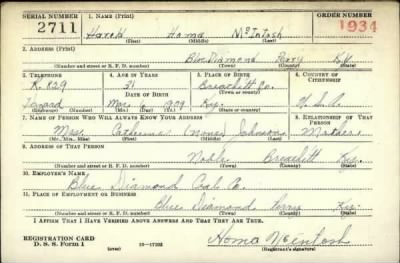 SERIAL NUMBER
1. NAME (Print)
ORDER NUMBER
2711
Harold Homa McIntosh
1934
(First) (Middle) (Last)
2. ADDRESS (Print)
Blue Diamond Perry Ky.
(Number and street or R. F. D. number) (Town) (County) (State)
3. TELEPHONE
4. AGE IN YEARS
5. PLACE OF BIRTH
6. COUNTRY OF CITIZENSHIP
K. 829
31
Breathitt Co.
DATE OF BIRTH
(Town or county)
Hazard
Mar. 6 1909
Ky.
U. S. A.
(Exchange) (Number)
(Mo.) (Day) (Yr.)
(State or country)
7. NAME OF PERSON WHO WILL ALWAYS KNOW YOUR ADDRESS
8. RELATIONSHIP OF THAT PERSON
Mrs. Catherine Johnson
Mother
(Mr., Mrs., Miss) (First) (Middle) (Last)
9. ADDRESS OF THAT PERSON
Noble Breathitt Ky.
(Number and street or R. F. D. number) (Town) (County) (State)
10. EMPLOYER'S NAME
Blue Diamond Coal Co.
11. PLACE OF EMPLOYMENT OR BUSINESS
Blue Diamond Perry Ky.
(Number and street or R. F. D. number) (Town) (County) (State)
I AFFIRM THAT I HAVE VERIFIED ABOVE ANSWERS AND THAT THEY ARE TRUE.
REGISTRATION CARD
D. S. S. Form 1
16—17105
Homa McIntosh
(Registrant's signature)